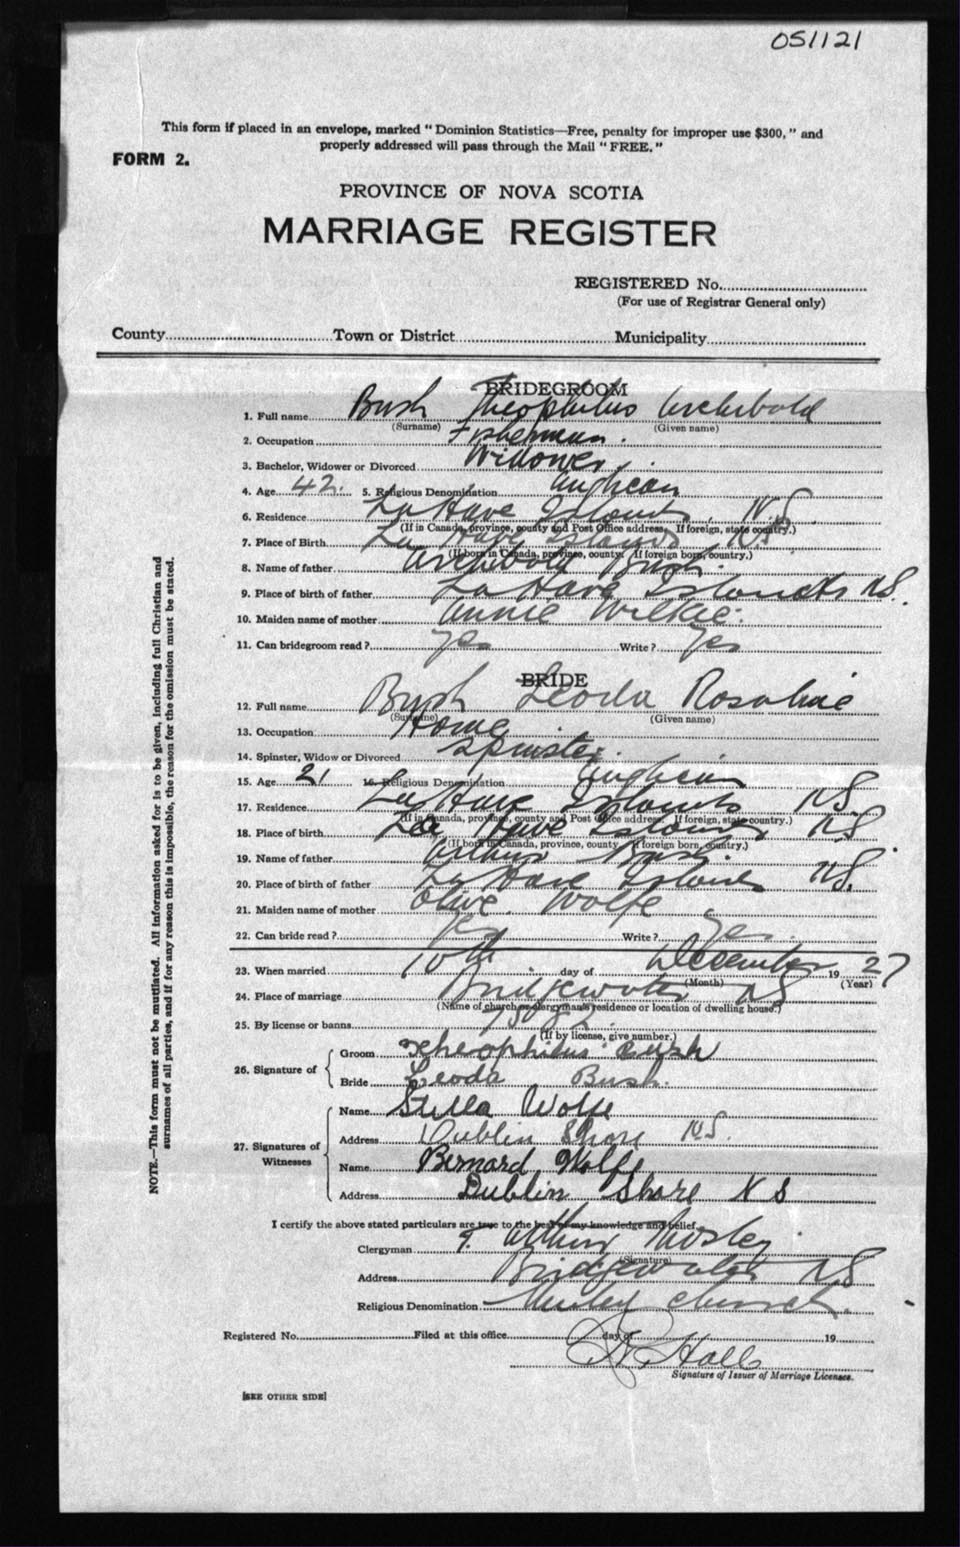 051121
This form if placed in an envelope, marked "Dominion Statistics—Free, penalty for improper use $300," and
properly addressed will pass through the Mail "FREE."
FORM 2.
PROVINCE OF NOVA SCOTIA
MARRIAGE REGISTER
REGISTERED No.
(For use of Registrar General only)
County Town or District Municipality
BRIDEGROOM
1. Full name Bush Theophilus Archibald
(Surname) (Given name)
2. Occupation Fisherman.
3. Bachelor, Widower or Divorced Widower
4. Age 42. 5. Religious Denomination Anglican
6. Residence La Have Islands, N.S.
(If in Canada, province, county and Post Office address. If foreign, state country.)
7. Place of Birth La Have Islands N.S
(If born in Canada, province, county. If foreign born, country.)
8. Name of father Archibald Bush.
9. Place of birth of father La Have Islands N.S.
10. Maiden name of mother Annie Wilkie.
11. Can bridegroom read? Yes Write? Yes
BRIDE
12. Full name Bush Leoda Rosaline
(Surname) (Given name)
13. Occupation Home
14. Spinster, Widow or Divorced Spinster.
15. Age 21 16. Religious Denomination Anglican
17. Residence La Have Islands NS
(If in Canada, province, county and Post Office address. If foreign, state country.)
18. Place of birth La Have Islands NS
(If born in Canada, province, county. If foreign born, country.)
19. Name of father Arthur Bush.
20. Place of birth of father La Have Islands NS.
21. Maiden name of mother Olive. Wolfe
22. Can bride read? Yes Write? Yes.
23. When married 10th day of December 1927
(Month) (Year)
24. Place of marriage Bridgewater NS
(Name of church or clergyman's residence or location of dwelling house.)
25. By license or banns
(If by license, give number.)
26. Signature of
Groom Theophilus Bush
Bride Leoda Bush.
27. Signatures of Witnesses
Name Stella Wolfe
Address Dublin Shore NS.
Name Bernard Wolfe
Address Dublin Shore N S
I certify the above stated particulars are true to the best of my knowledge and belief.
Clergyman Arthur Mosley.
(Signature)
Address Bridgewater NS
Religious Denomination United Church.
Registered No. Filed at this office day of 19
Signature of Issuer of Marriage Licenses.
[SEE OTHER SIDE]
NOTE.—This form must not be mutilated. All information asked for is to be given, including full Christian and
surnames of all parties, and if for any reason this is impossible, the reason for the omission must be stated.